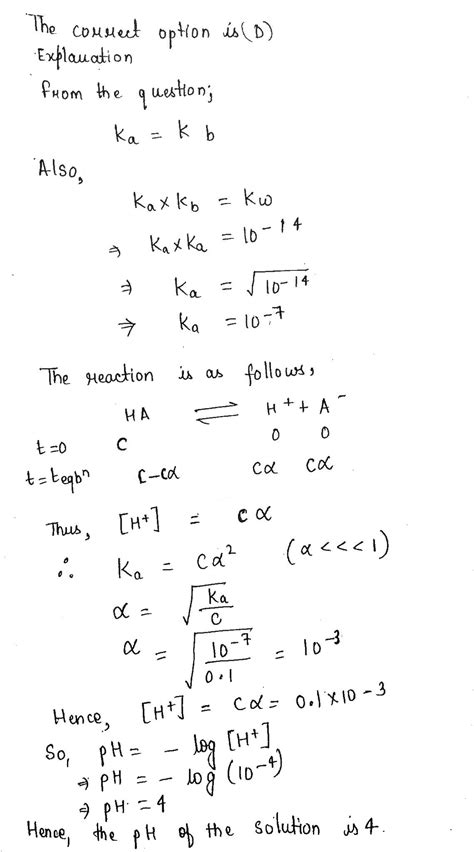 The correct option is (D)
Explanation
From the question;
Ka = K b
Also,
Ka × Kb = Kw
⇒ Ka × Ka = 10⁻¹⁴
⇒ Ka = √10⁻¹⁴
⇒ Ka = 10⁻⁷
The reaction is as follows,
HA ⇌ H⁺ + A⁻
t=0 C 0 0
t=teqbⁿ C–Cα Cα Cα
Thus, [H⁺] = Cα
∴ Ka = Cα² (α <<< 1)
α = √(Ka/C)
α = √(10⁻⁷/0.1) = 10⁻³
Hence, [H⁺] = Cα = 0.1×10-3
So, pH = – log [H⁺]
⇒ pH = – log (10⁻⁴)
⇒ pH = 4
Hence, the pH of the solution is 4.